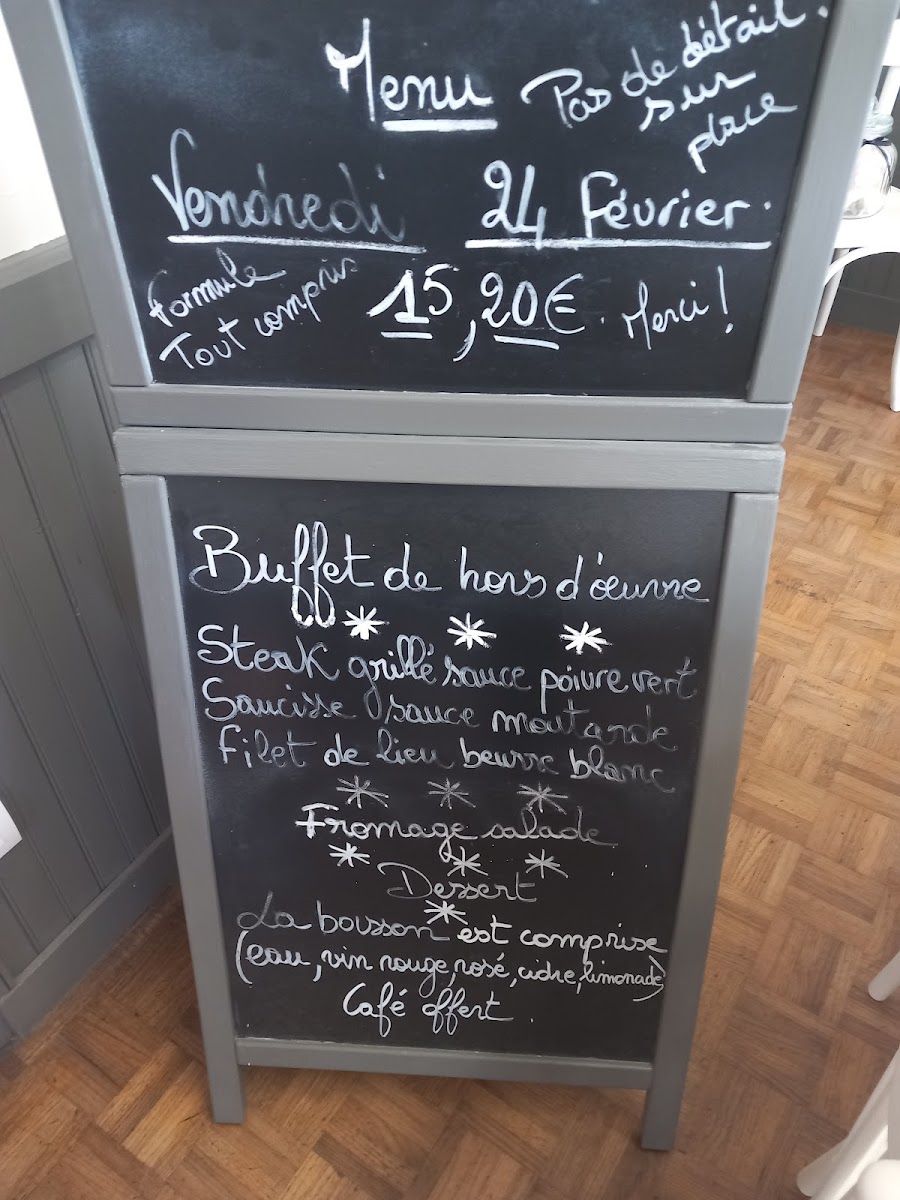 Menu
Pas de détail.
sur
place
Vendredi 24 Février.
Formule
Tout compris
15,20€. Merci!
Buffet de hors d'œuvre
Steak grillé sauce poivre vert
Saucisse sauce moutarde
Filet de lieu beurre blanc
Fromage salade
Dessert
La boisson est comprise
(eau, vin rouge, rosé, cidre, limonade)
Café offert.